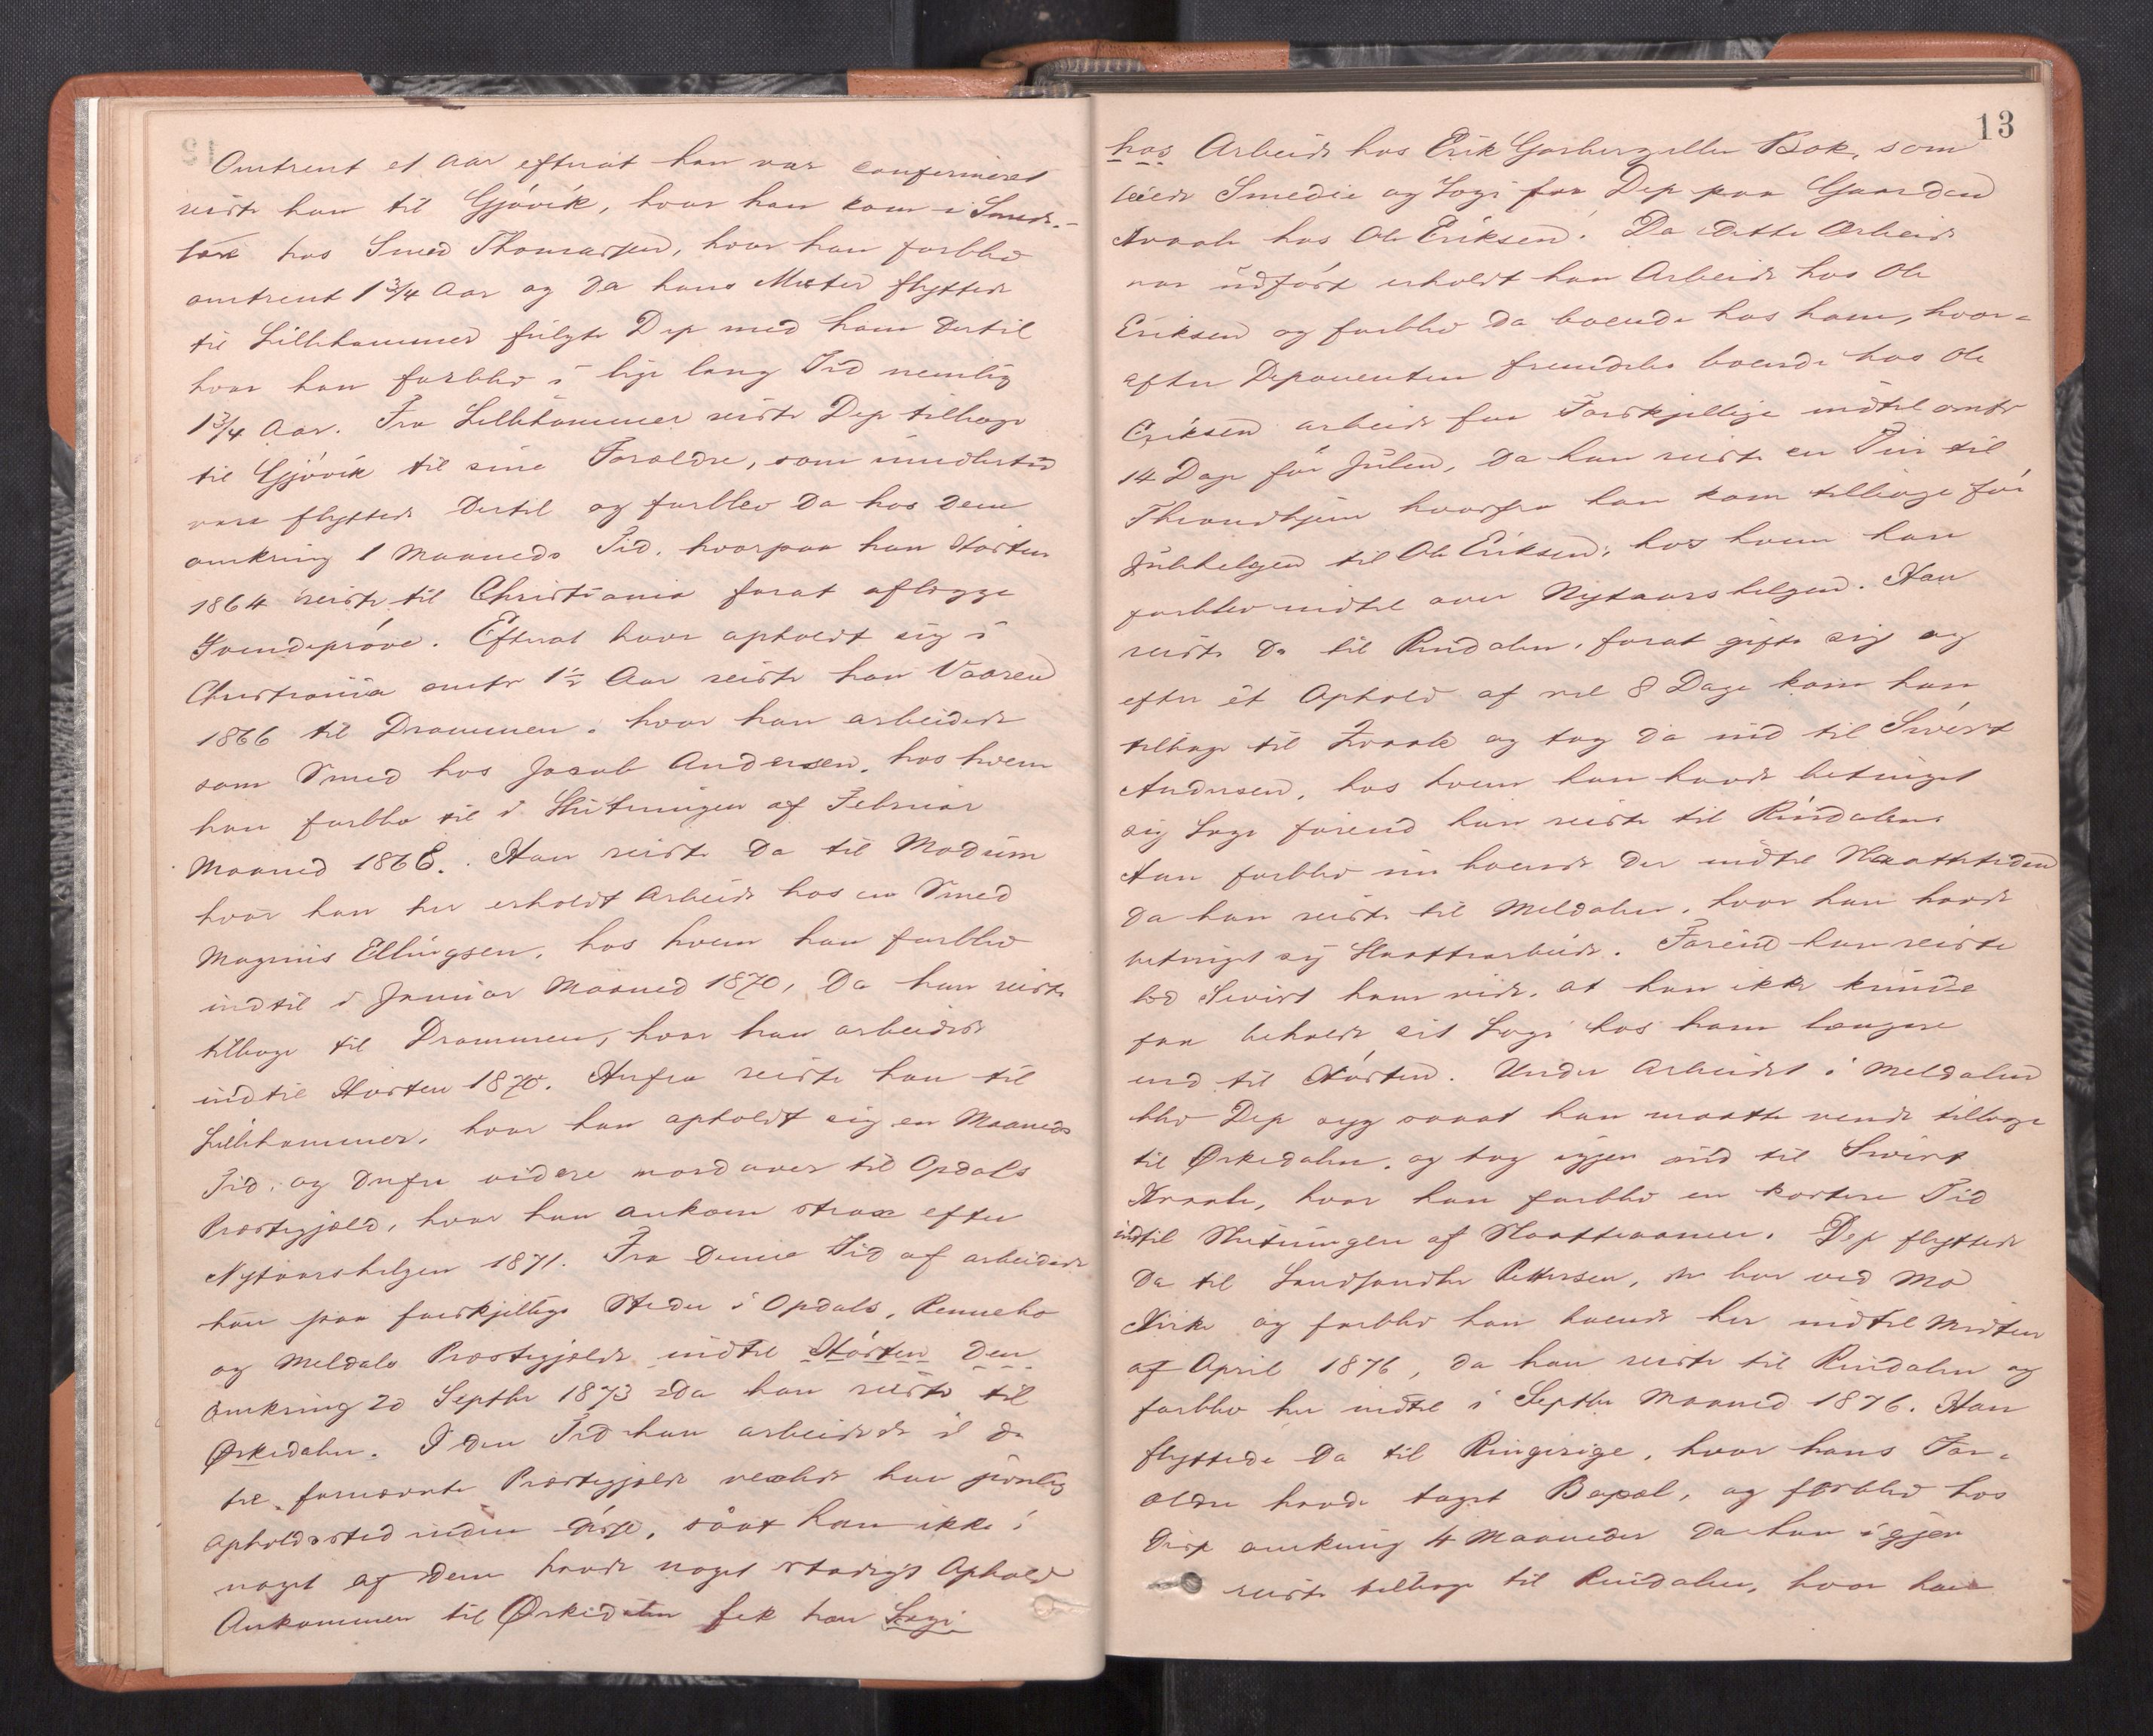 Omtrent et Aar efterat han var confirmeret
reiste han til Gjøvik, hvor han kom i Smede-
lære hos Smed Thomassen, hvor han forblev
omtrent 1 3/4 Aar og da hans Mester flyttede
til Lillehammer fulgte Dep med ham dertil
hvor han forblev i lige lang Tid nemlig
1 3/4 Aar. Fra Lillehammer reiste Dep tilbage
til Gjøvik til sine Forældre, som imidlertid
vare flyttede dertil og forblev da hos dem
omkring 1 Maaneds Tid, hvorpaa han Høsten
1864 reiste til Christiania forat aflægge
Svendeprøve. Efterat have opholdt sig i
Christiania omtr 1 1/2 Aar reiste han Vaaren
1866 til Drammen, hvor han arbeidede
som Smed hos Jacob Andersen, hos hvem
han forblev til i Slutningen af Februar
Maaned 1868. Han reiste da til Modum
hvor han her erholdt Arbeide hos en Smed
Magnus Ellingsen, hos hvem han forblev
indtil i Januar Maaned 1870, da han reiste
tilbage til Drammen, hvor han arbeidede
indtil Høsten 1870. Herfra reiste han til
Lillehammer, hvor han opholdt sig en Maaneds
Tid, og derfra videre nordover til Opdals
Præstegjæld, hvor han ankom strax efter
Nytaarshelgen 1871. Fra denne Tid af arbeidede
han paa forskjellige Steder i Opdals, Rennebo
og Meldals Præstegjelde indtil Høsten den
omkring 20 Septbr 1873 da han reiste til
Ørkedalen. I den Tid han arbeidede i de
tre fornævnte Præstegjelde vexlede han jevnlig
Opholdssted inden disse, saaat han ikke i
noget af dem havde noget stadigt Ophold
Ankommen til Ørkedalen fik han Logi
13
hos Arbeide hos Erik Garberg eller Bak, som
leiede Smedie og Logi for Dep paa Gaarden
Kvaale hos Ole Eriksen. Da dette Arbeide
var udført erholdt han Arbeide hos Ole
Eriksen og forblev da boende hos ham, hvor-
efter Deponenten fremdeles boende hos Ole
Eriksen arbeide for Forskjellige indtil omtr
14 Dage før Julen, da han reiste en Tur til
Throndhjem hvorfra han kom tilbage før
Julehelgen til Ole Eriksen, hos hvem han
forblev indtil over Nytaarshelgen. Han
reiste da til Rindalen, forat gifte sig og
efter et Ophold af vel 8 Dage kom han
tilbage til Kvaale og tog da ind til Sivert
Andersen, hos hvem han havde betinget
sig Logi forend han reiste til Rindalen.
Han forblev nu boende der indtil Slaattetiden
da han reiste til Meldalen, hvor han havde
betinget sig Slaattearbeide. Forend han reiste
lod Sivert ham vide, at han ikke kunde
faa beholde sit Logi hos ham længere
end til Høsten. Under Arbeidet i Meldalen
blev Dep syg saaat han maatte vende tilbage
til Ørkedalen, og tog igjen ind til Sivert
Kvaale, hvor han forblev en kortere Tid
indtil Slutningen af Slaatteaannen. Dep flyttede
da til Landhandler Pettersen, der bor ved Mo
Kirke og forblev han boende her indtil Midten
af April 1876, da han reiste til Rindalen og
forblev her indtil i Septbr Maaned 1876. Han
flyttede da til Ringerige, hvor hans For-
ældre havde taget Bopæl, og forblev hos
disse omkring 4 Maaneder da han igjen
reiste tilbage til Rindalen, hvor han